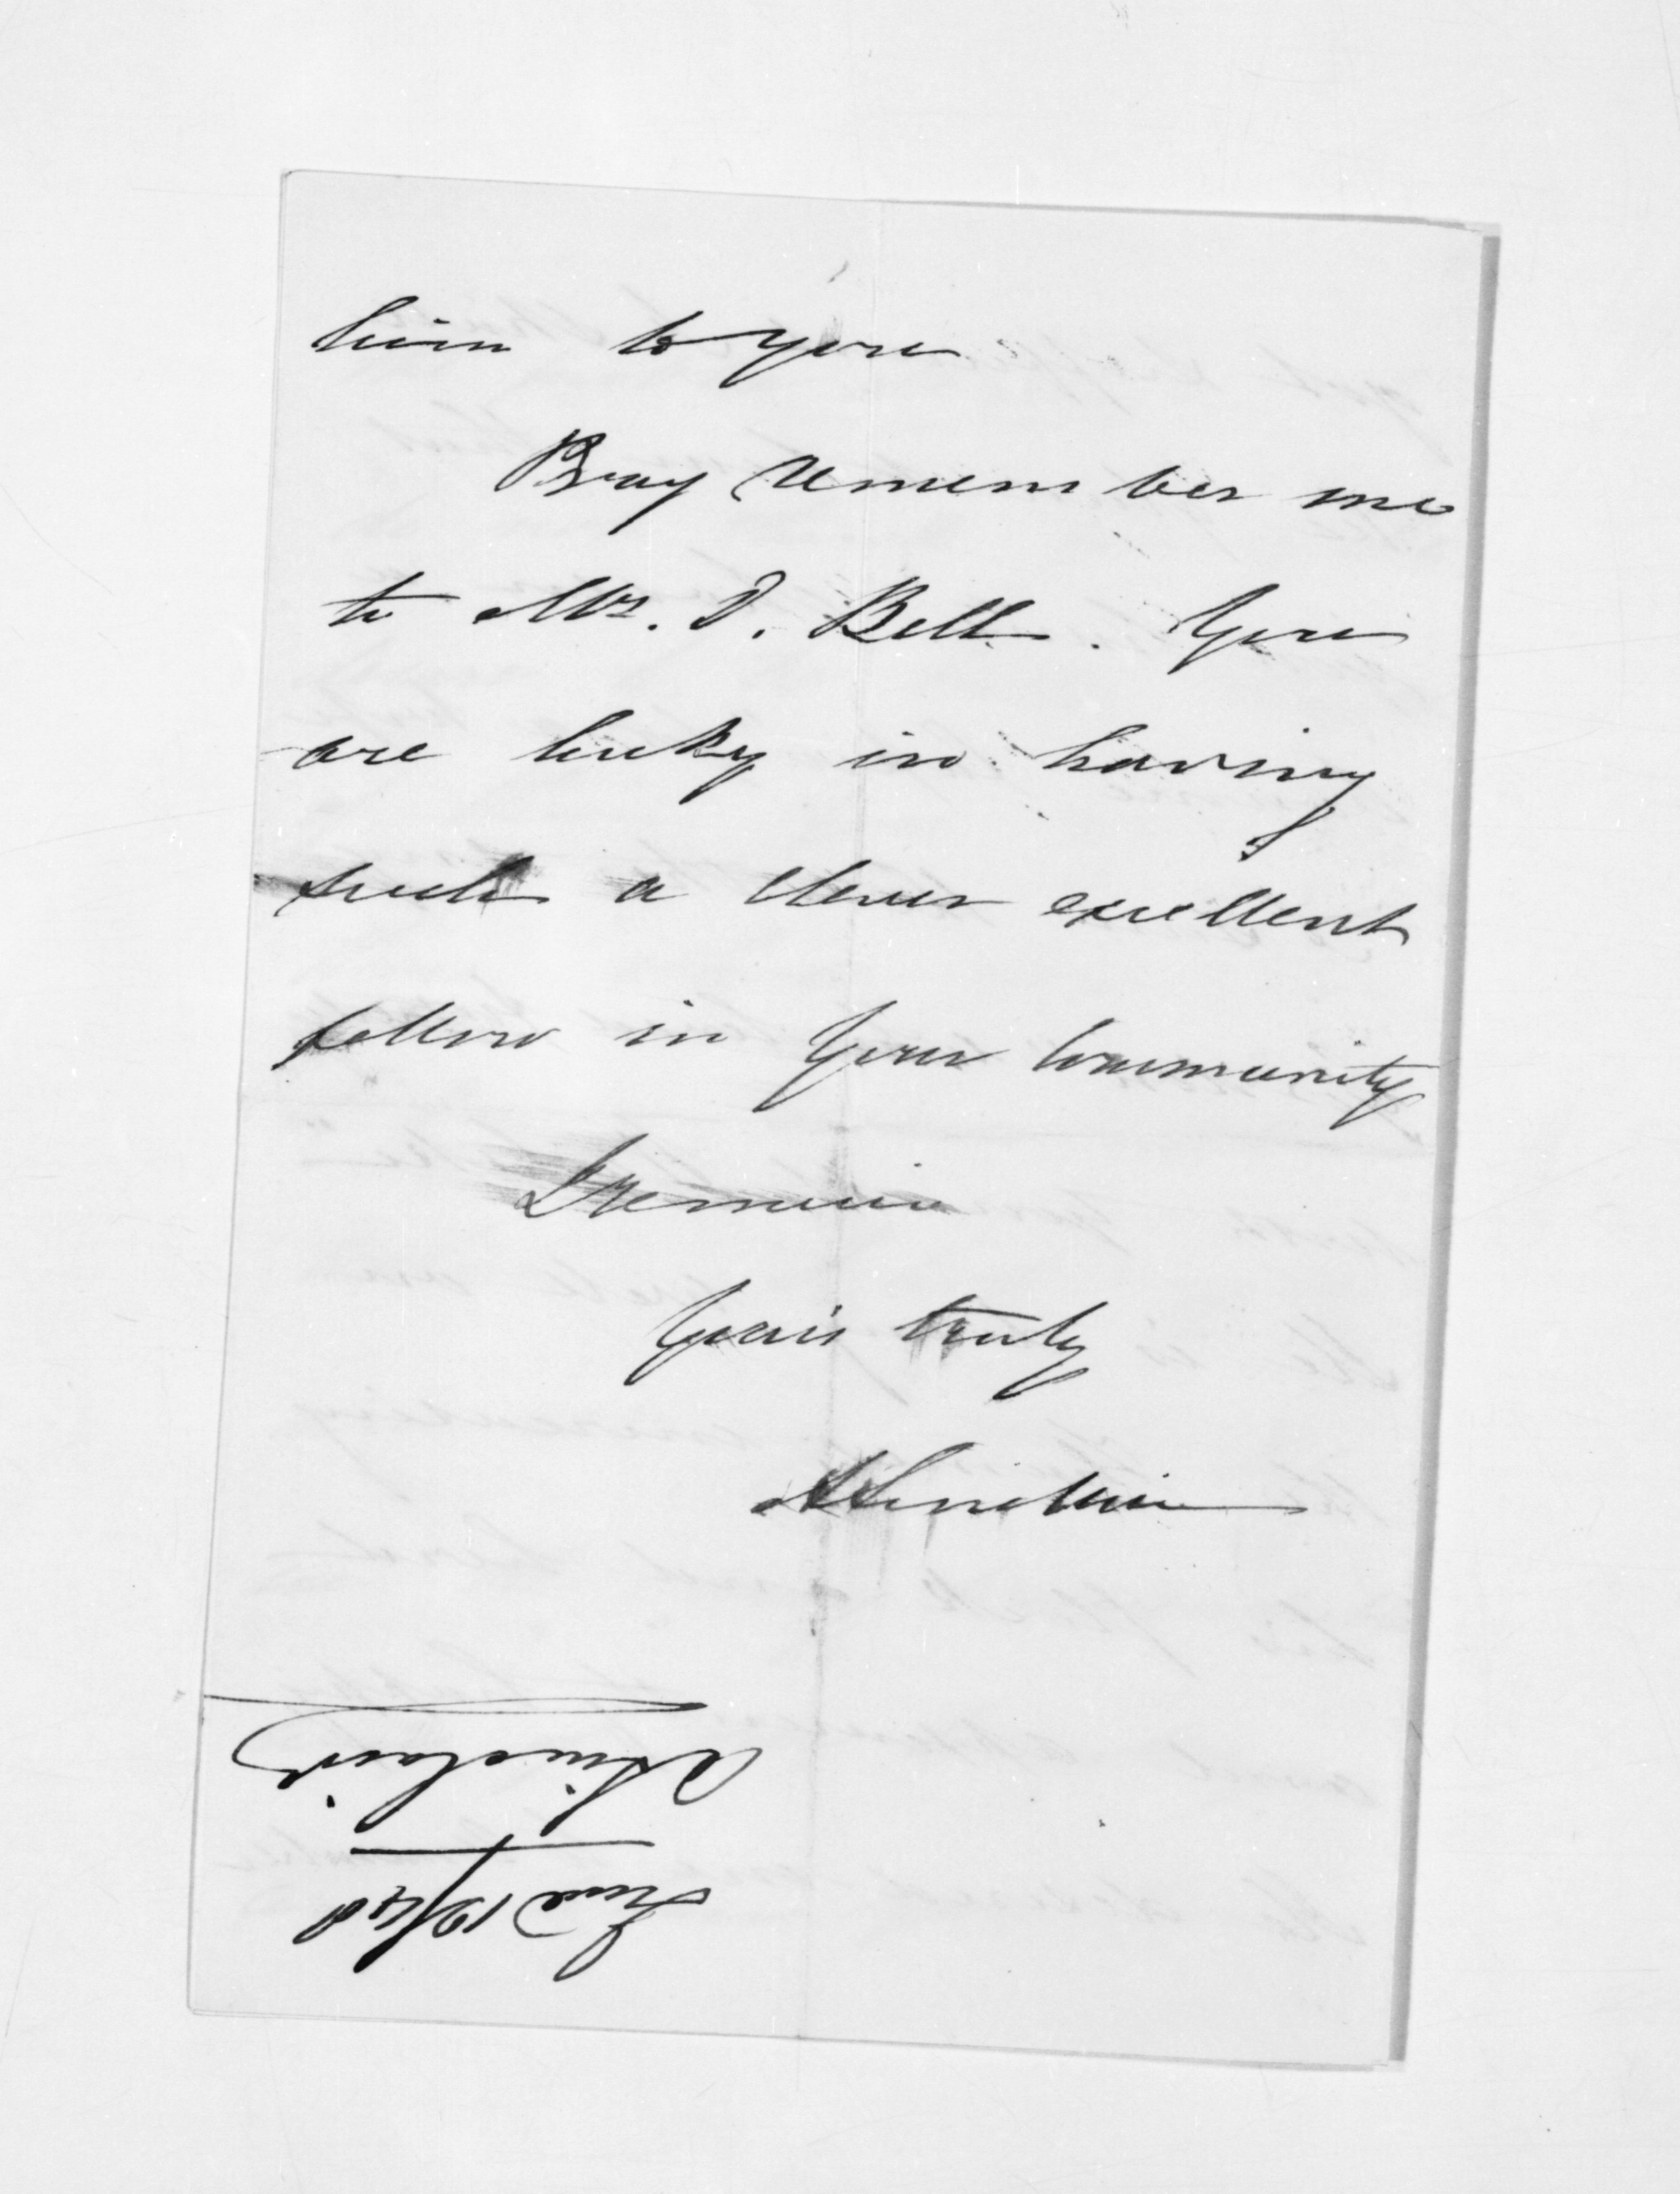 him to you
Pray remember me
to Mr. D. Bell. You
are lucky in having
such a clever excellent
fellow in your community
I remain
Yours truly
A Sinclair
A Sinclair
June 12/48